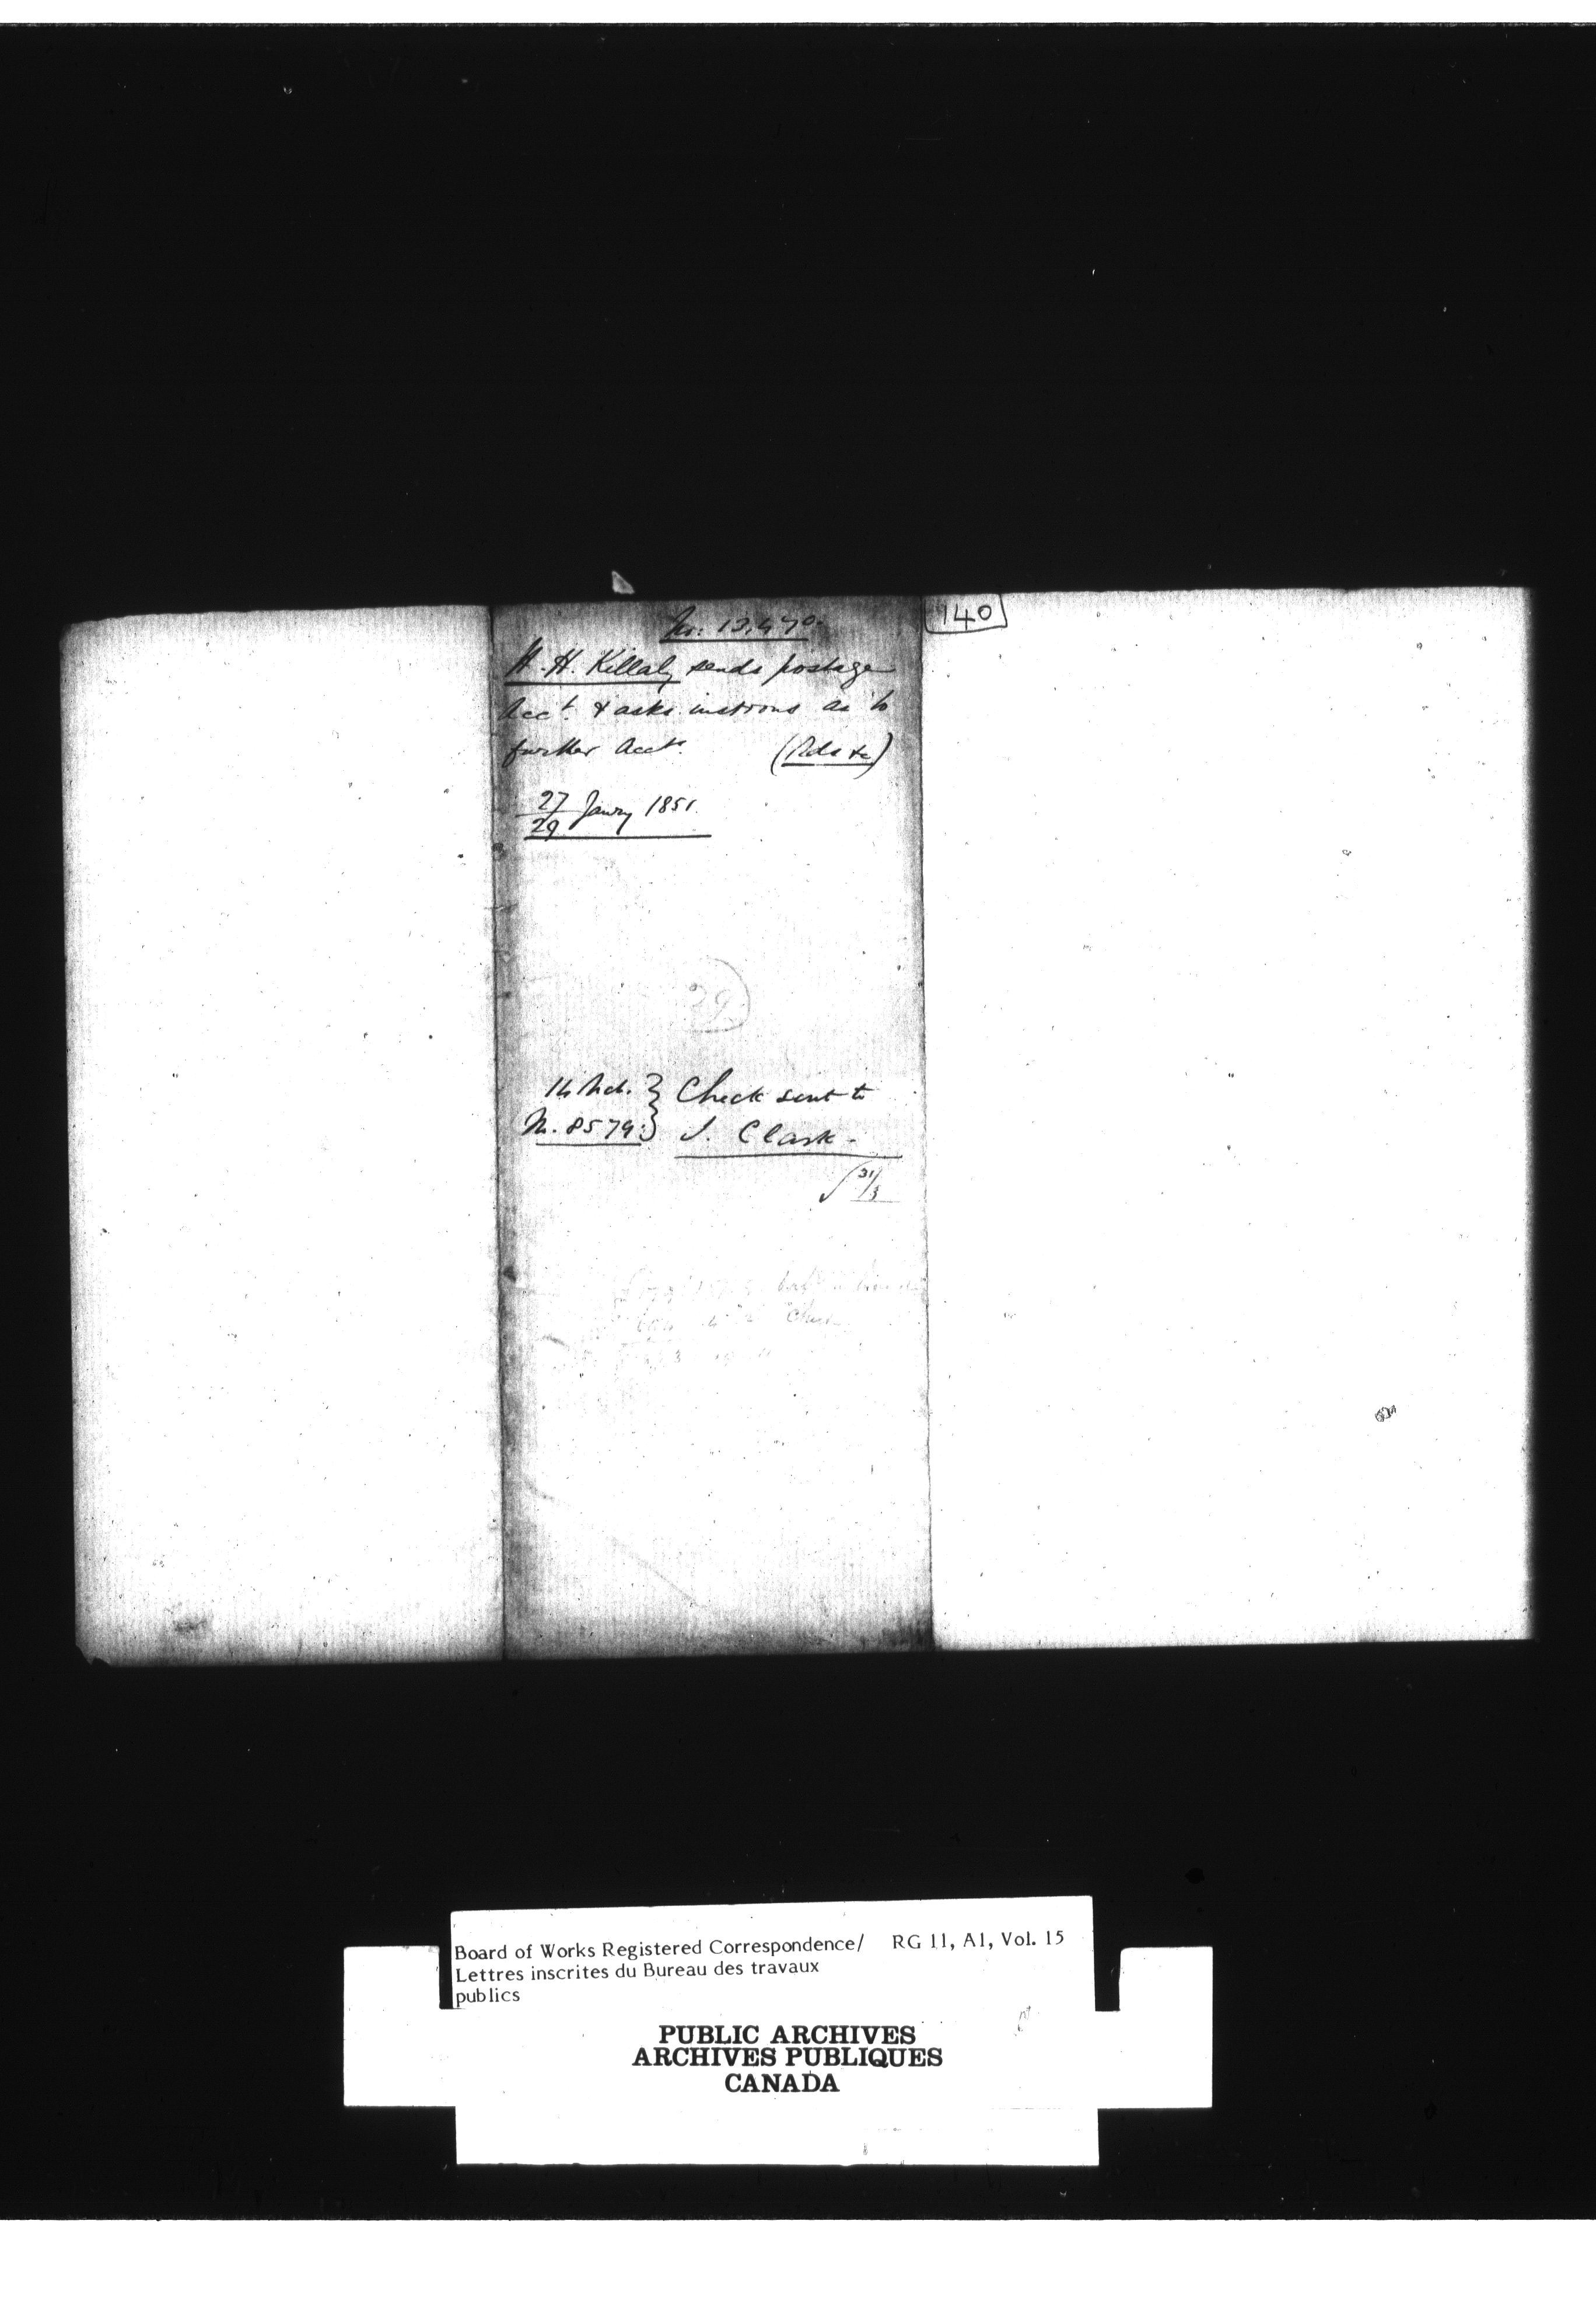 No: 13,470.
H. H. Killaly sends postage
Acct. & asks instrons as to
further Accts. (Rds &c)
27 Janry 1851.
29
140
29
14 Mch. } Check sent to
No. 8579. } J. Clark.
31/3
Board of Works Registered Correspondence/ RG 11, A1, Vol. 15
Lettres inscrites du Bureau des travaux
publics
PUBLIC ARCHIVES
ARCHIVES PUBLIQUES
CANADA